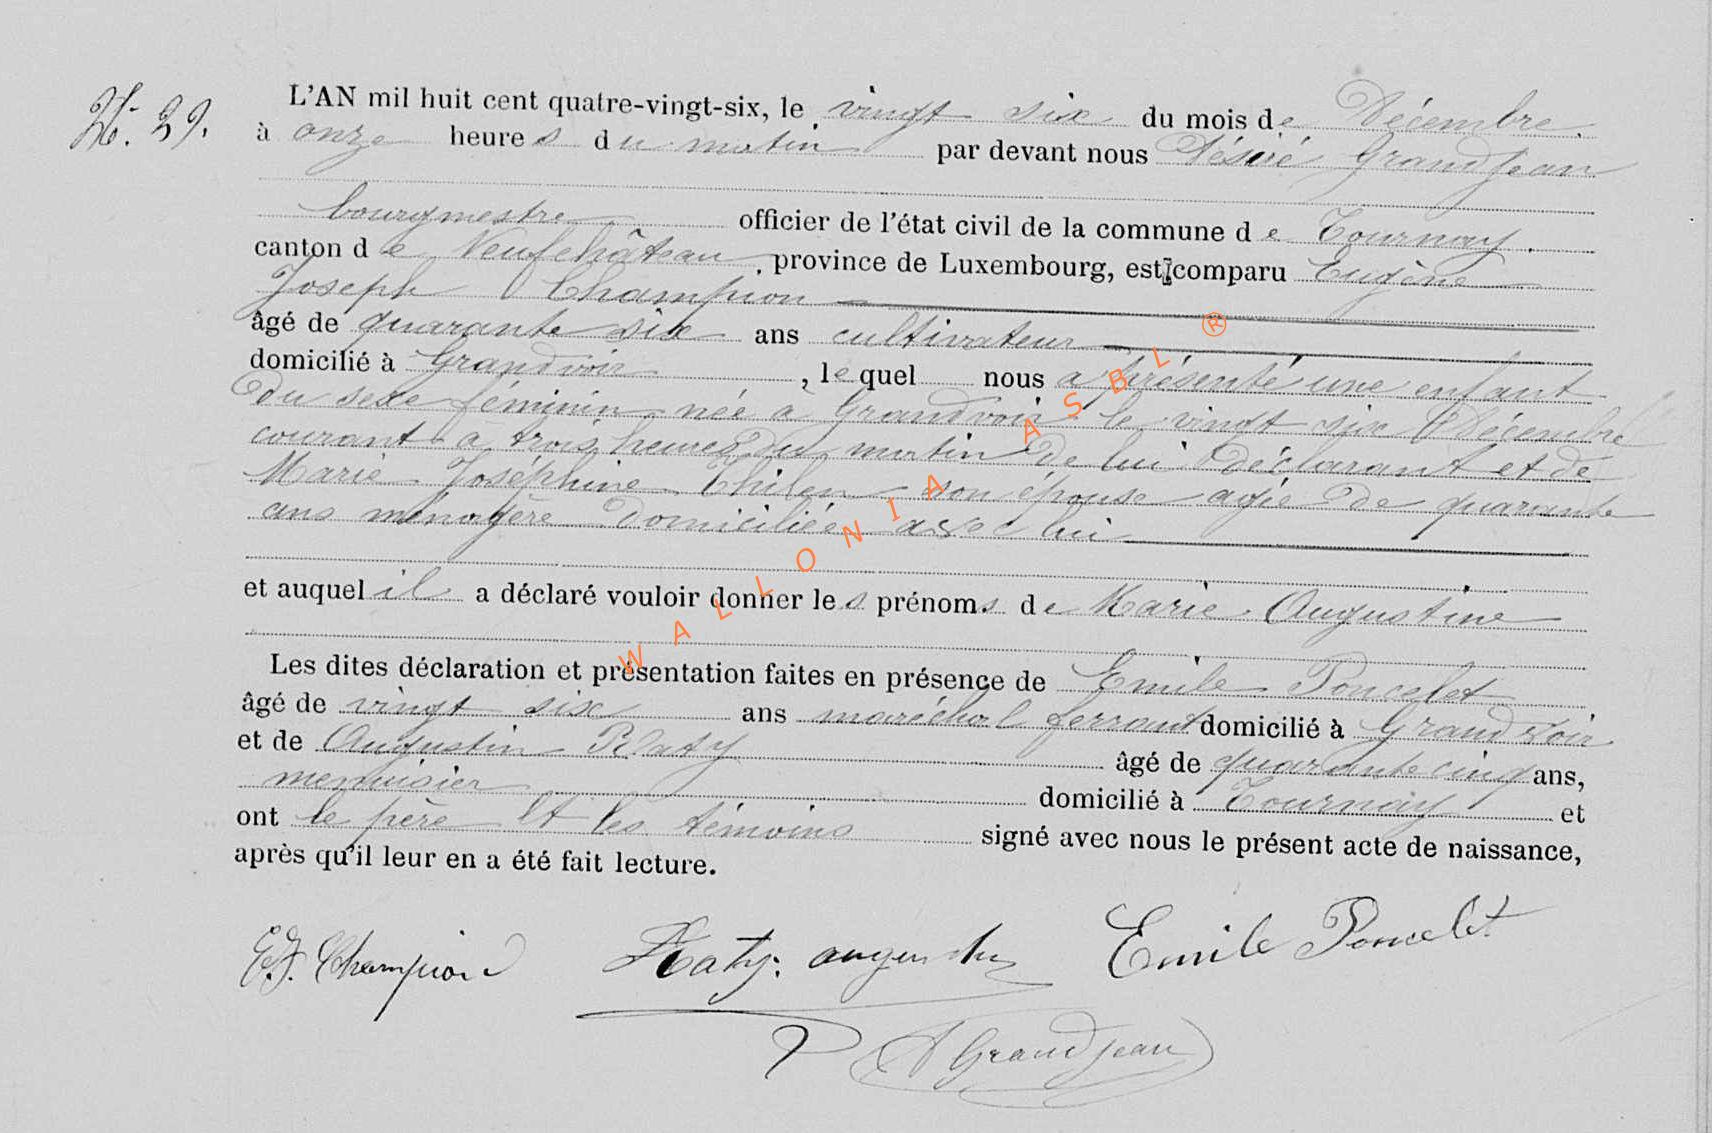 N. 29.
L'AN mil huit cent quatre-vingt-six, le vingt six du mois de Décembre.
à onze heures du matin par devant nous Désiré Grandjean
bourgmestre officier de l'état civil de la commune de Tournay.
canton de Neufchâteau, province de Luxembourg, est comparu Eugène
Joseph Champion
âgé de quarante six ans cultivateur
domicilié à Grandvoir, lequel nous a présenté une enfant
du sexe féminin née à Grandvoir le vingt six Décembre
courant à trois heures du matin de lui déclarant et de
Marie Joséphine Thilen son épouse agée de quarante
ans ménagère domiciliée avec lui
et auquel il a déclaré vouloir donner les prénoms de Marie Augustine
Les dites déclaration et présentation faites en présence de Emile Poncelet
âgé de vingt six ans maréchal ferrant domicilié à Grandvoir
et de Augustin Raty âgé de quarante cinq ans,
menuisier domicilié à Tournay et
ont le père et les témoins signé avec nous le présent acte de naissance,
après qu'il leur en a été fait lecture.
E.J. Champion Raty. augustin Emile Poncelet
D Grandjean
WALLONIA ASBL ®